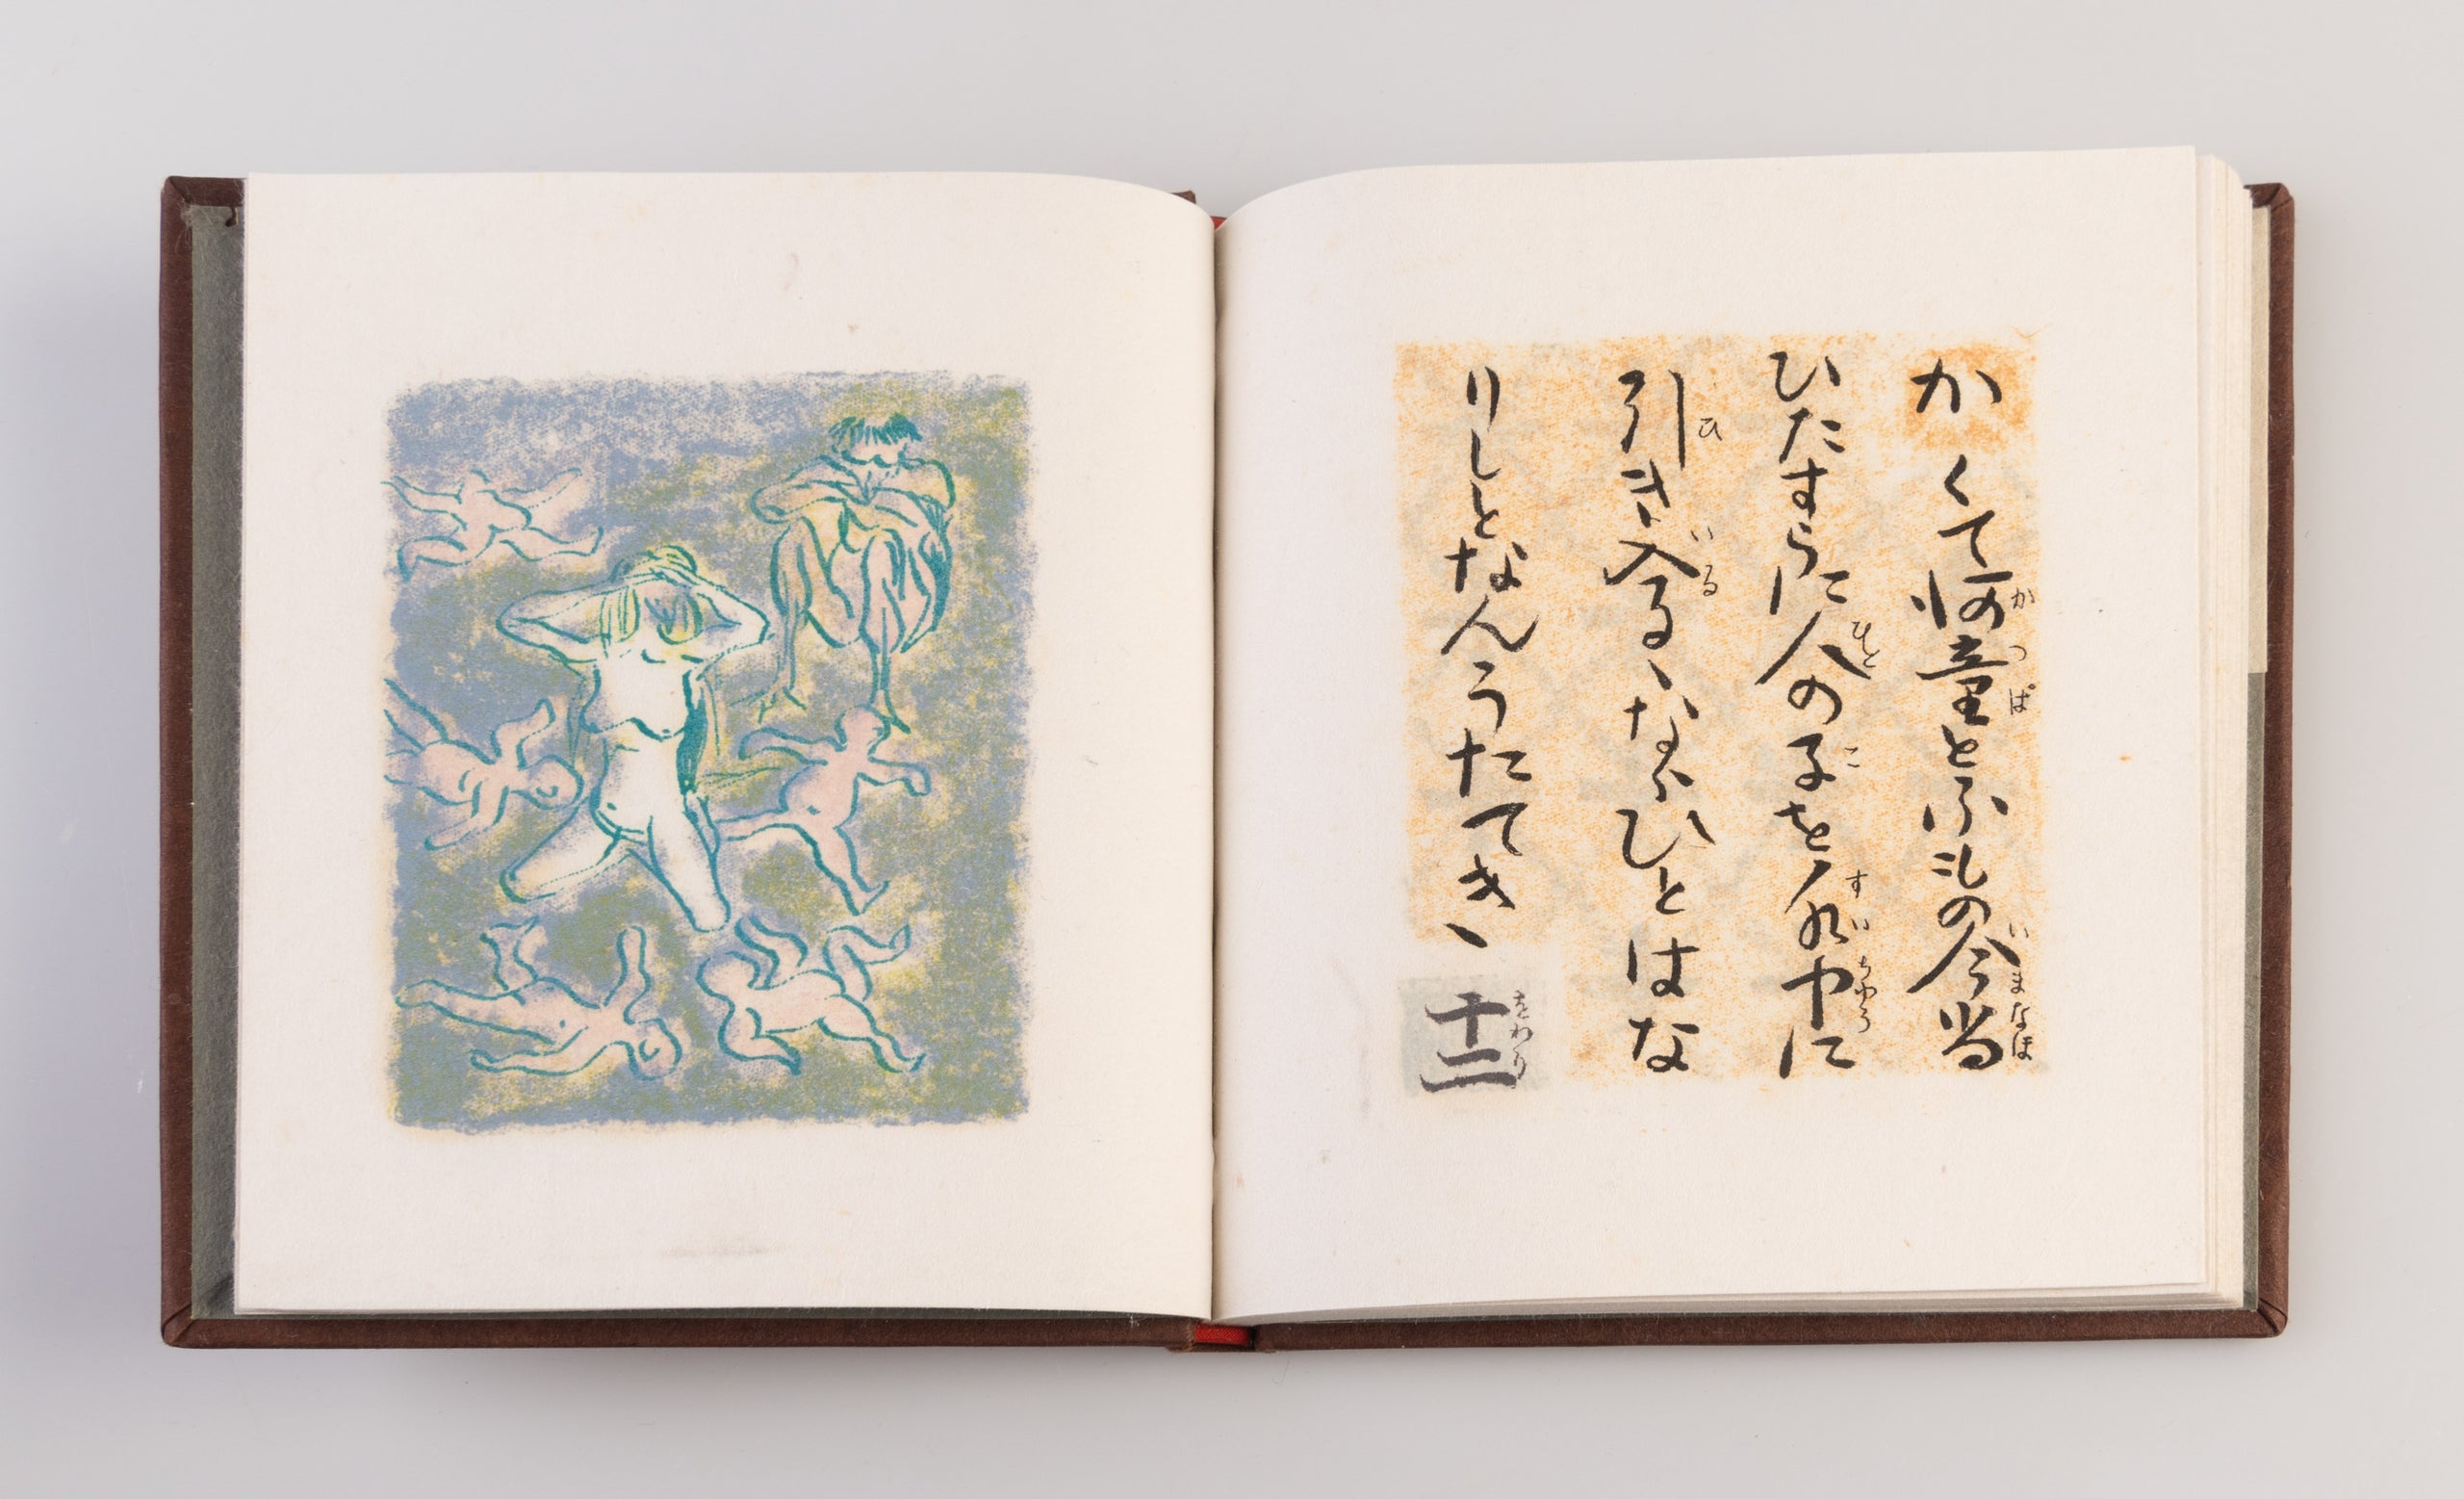 かくて河童とふもの今尚
かつぱ いまなほ
ひたすらに人の子を水中に
ひと こ すいちゆう
引き入るゝならひとはな
ひ いる
りしとなんうたてき、
十二
をわり